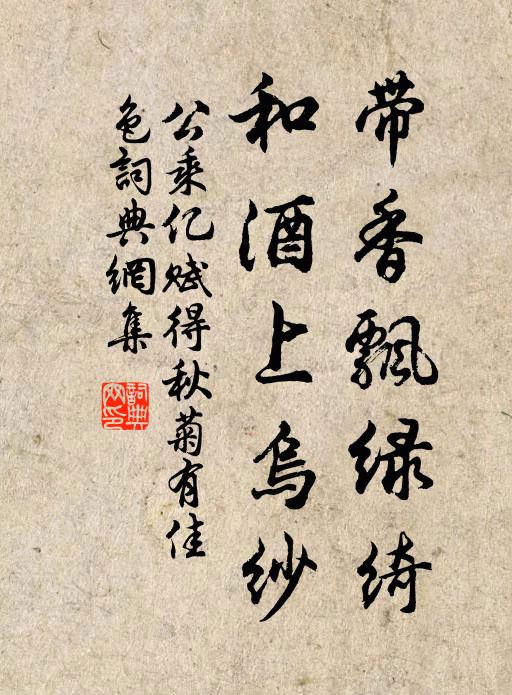 带香飘绿绮
和酒上乌纱
公乘亿赋得秋菊有佳
色詞典網集
詞典
网印